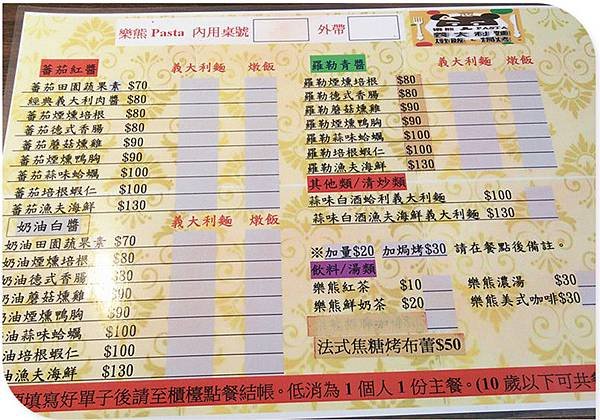 樂熊 Pasta 內用桌號 外帶
義大利麵
番茄紅醬 義大利麵 燉飯
番茄田園蔬果素 $70
經典義大利肉醬 $80
番茄煙燻培根 $80
番茄德式香腸 $80
番茄蘑菇燻雞 $90
番茄煙燻鴨胸 $90
番茄蒜味蛤蠣 $100
番茄培根蝦仁 $100
番茄漁夫海鮮 $130
奶油白醬 義大利麵 燉飯
奶油田園蔬果素 $70
奶油煙燻培根 $80
奶油德式香腸 $80
油蘑菇燻雞 $90
油煙燻鴨胸 $90
油蒜味蛤蠣 $100
油培根蝦仁 $100
油漁夫海鮮 $130
羅勒青醬 義大利麵 燉飯
羅勒煙燻培根 $80
羅勒德式香腸 $80
羅勒蘑菇燻雞 $90
羅勒煙燻鴨胸 $90
羅勒蒜味蛤蠣 $100
羅勒培根蝦仁 $100
羅勒漁夫海鮮 $130
其他類/清炒類
蒜味白酒蛤利義大利麵 $100
蒜味白酒漁夫海鮮義大利麵 $130
※加量$20 加焗烤$30 請在餐點後備註。
飲料/湯類
樂熊紅茶 $10 樂熊濃湯 $30
樂熊鮮奶茶 $20 樂熊美式咖啡$30
法式焦糖烤布蕾$50
填寫好單子後請至櫃檯點餐結帳。低消為1個人1份主餐。(10歲以下可共